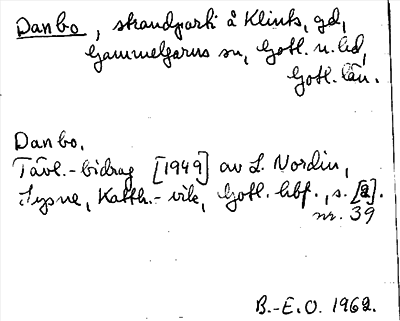 Danbo, strandparti å Klints, gd,
Gammelgarns sn, Gotl. n. hd,
Gotl. län.
Danbo.
Tävl.-bidrag [1949] av L. Nordin,
Sysne, Katth.-vik, Gotl. hbf., s. [2].
nr. 39
B.-E.O. 1962.